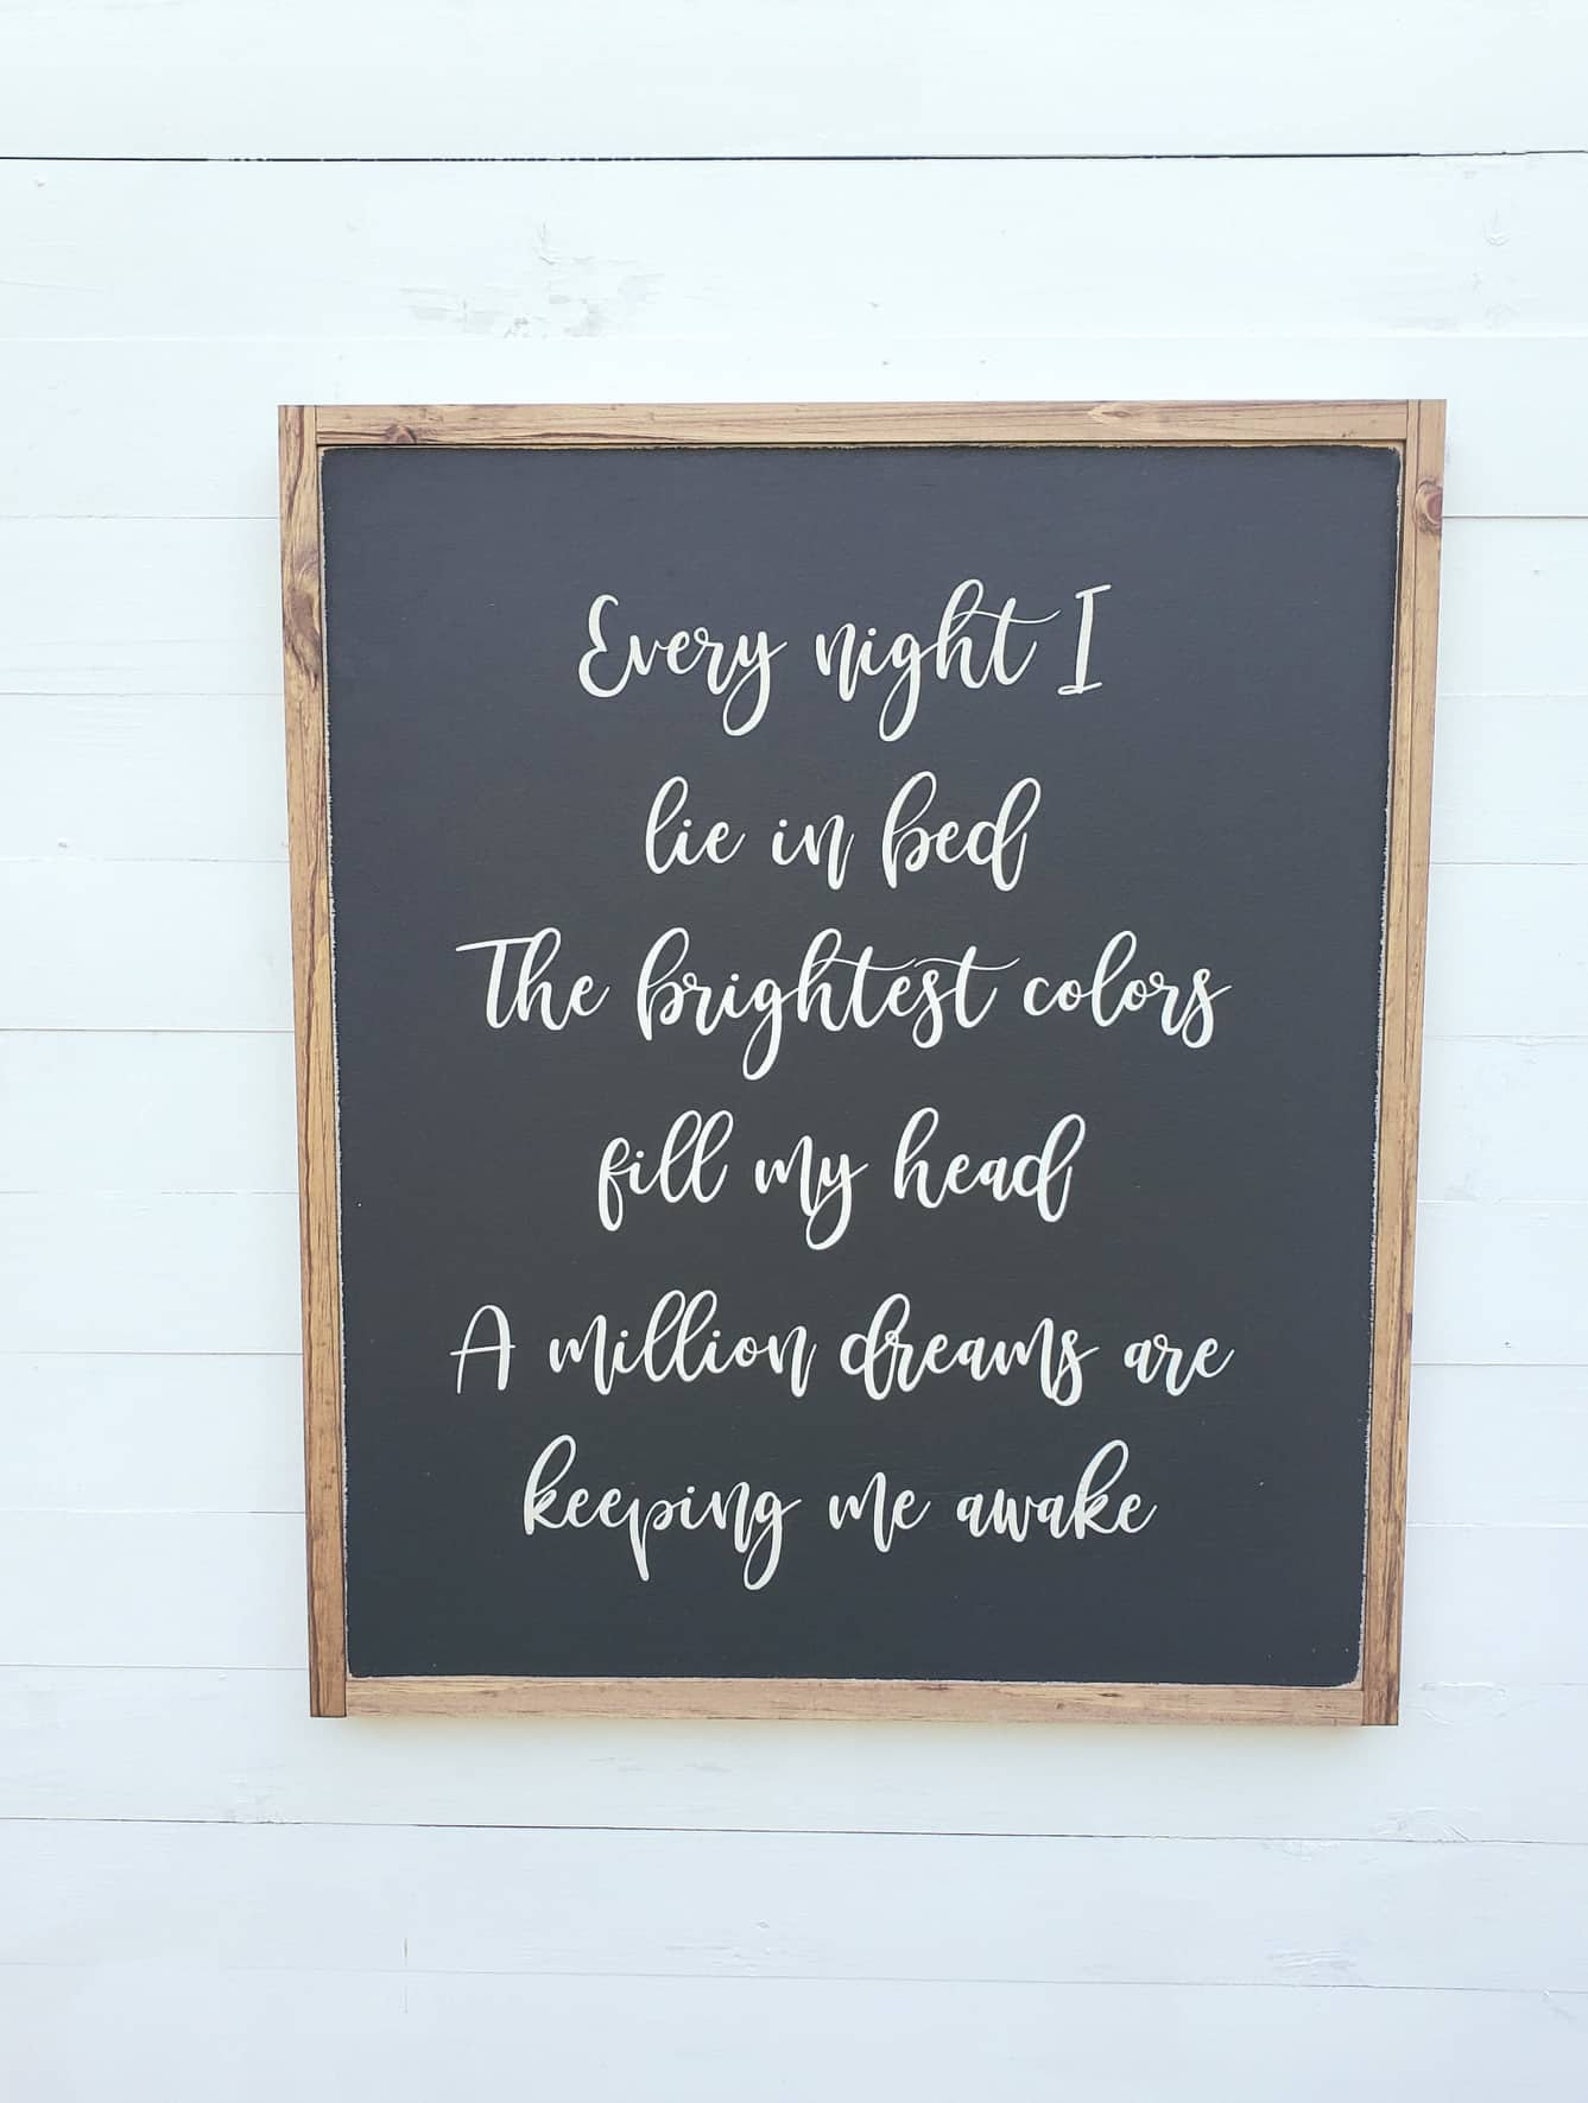 Every night I
lie in bed
The brightest colors
fill my head
A million dreams are
keeping me awake